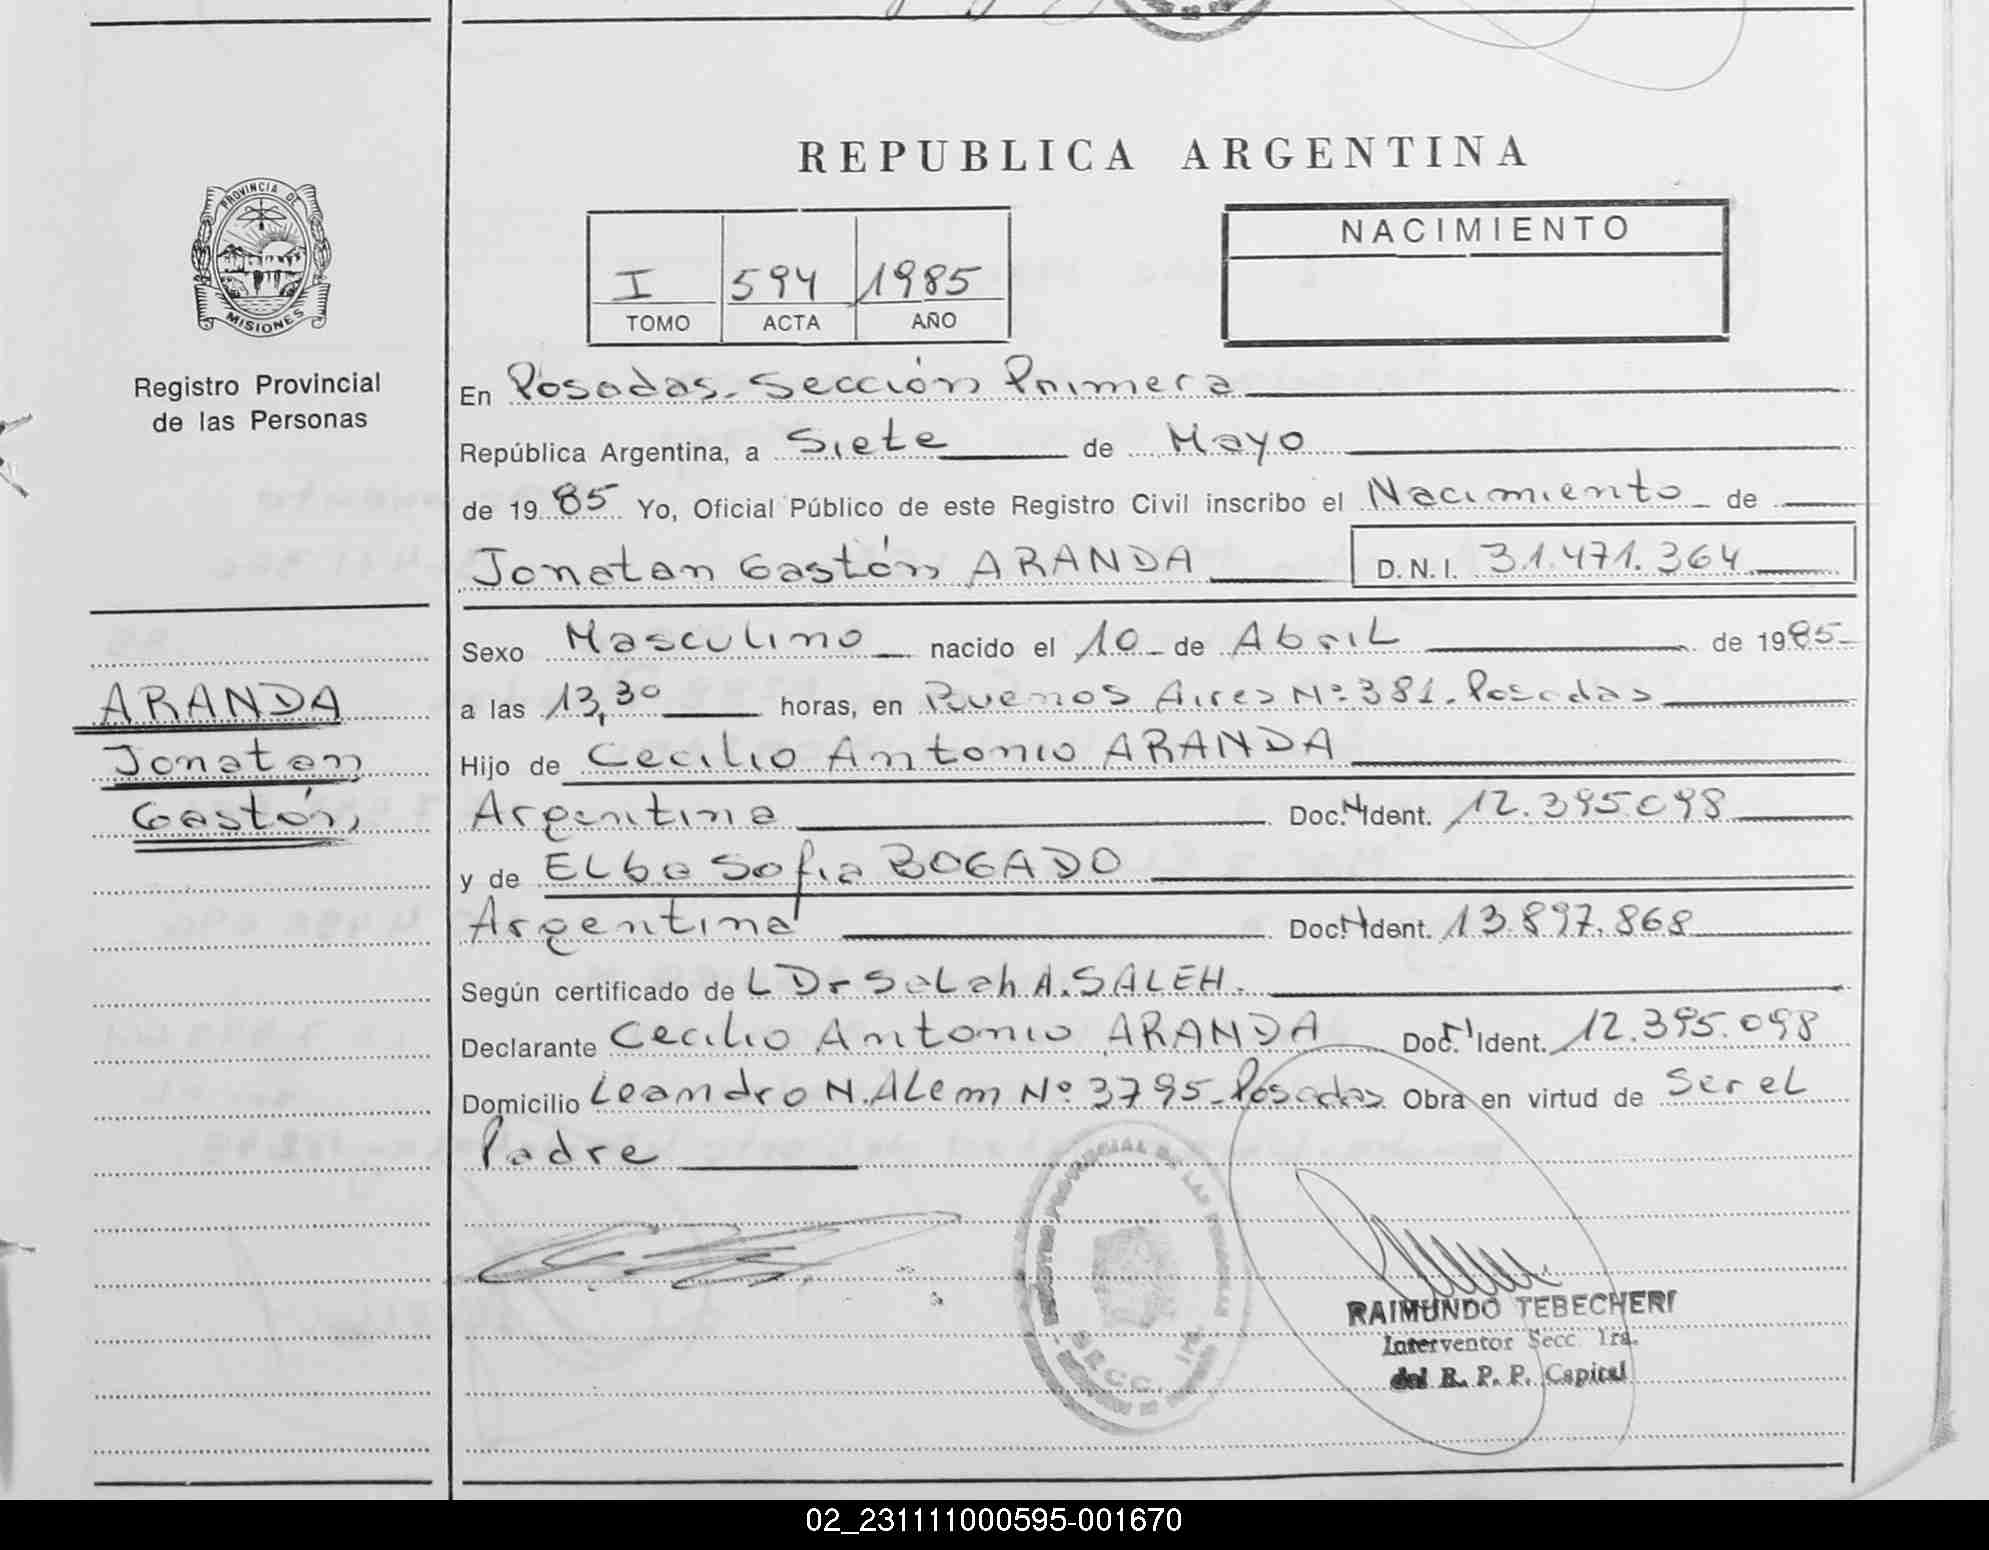 REPUBLICA ARGENTINA
PROVINCIA DE
MISIONES
Registro Provincial
de las Personas
I 594 1985
TOMO ACTA AÑO
NACIMIENTO
En Posadas. Sección Primera
República Argentina, a Siete de Mayo
de 1985 Yo, Oficial Público de este Registro Civil inscribo el Nacimiento de
Jonatan Gastón ARANDA D.N.I. 31.471.364
Sexo Masculino nacido el 10 de Abril de 1985
ARANDA
Jonatan
Gastón
a las 13,30 horas, en Buenos Aires Nº 381. Posadas
Hijo de Cecilio Antonio ARANDA
Argentina Doc. Ident. 12.395.098
y de Elba Sofia BOGADO
Argentina Doc. Ident. 13.897.868
Según certificado de L Dr Salah A. SALEH.
Declarante Cecilio Antonio ARANDA Doc. Ident. 12.395.098
Domicilio Leandro N. Alem Nº 3795 - Posadas Obra en virtud de Ser el
Padre
REGISTRO PROVINCIAL DE LAS PERSONAS
SECC. 1ra.
RAIMUNDO TEBECHERI
Interventor Secc. 1ra.
del R. P. P. Capital
02_231111000595-001670